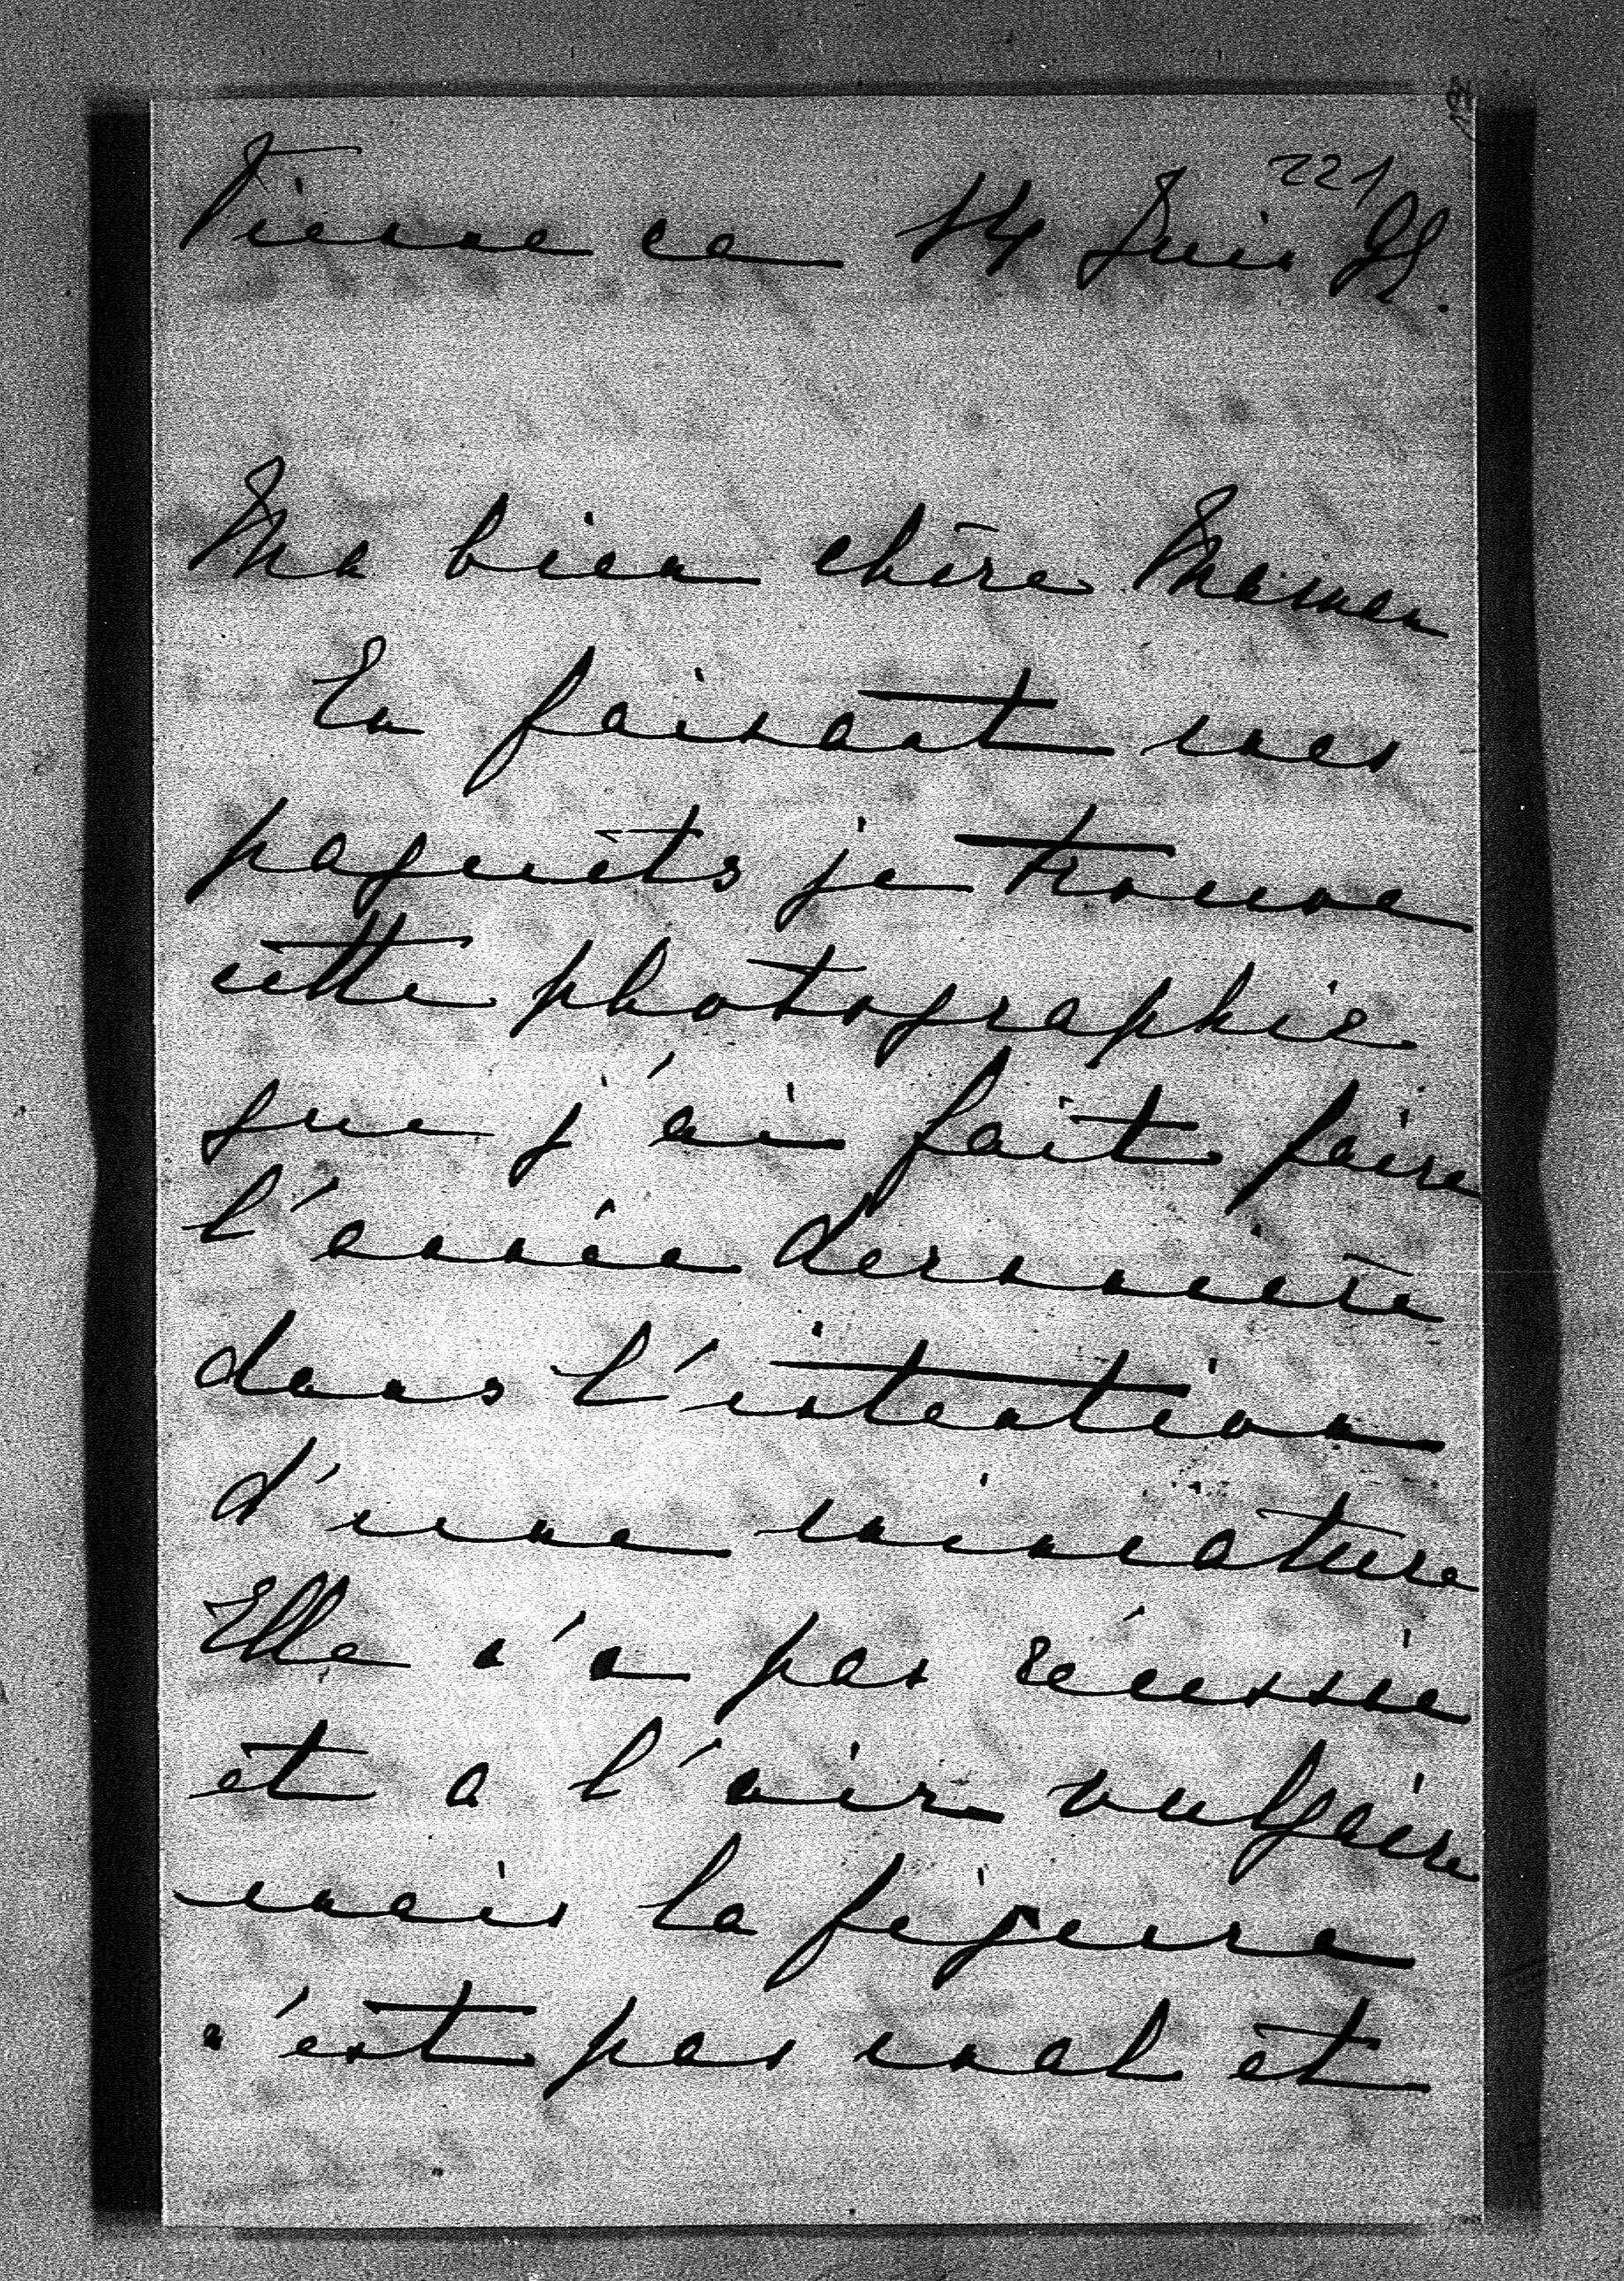 221
Vienne ce 14 Juin 98.
Ma bien chère Maman
En faisant mes
paquets je trouve
cette photographie
que j'ai fait faire
l'année dernière
dans l'intention
d'une miniature
Elle n'a pas réussie
et a l'air vulgaire
mais la figure
n'est pas mal et